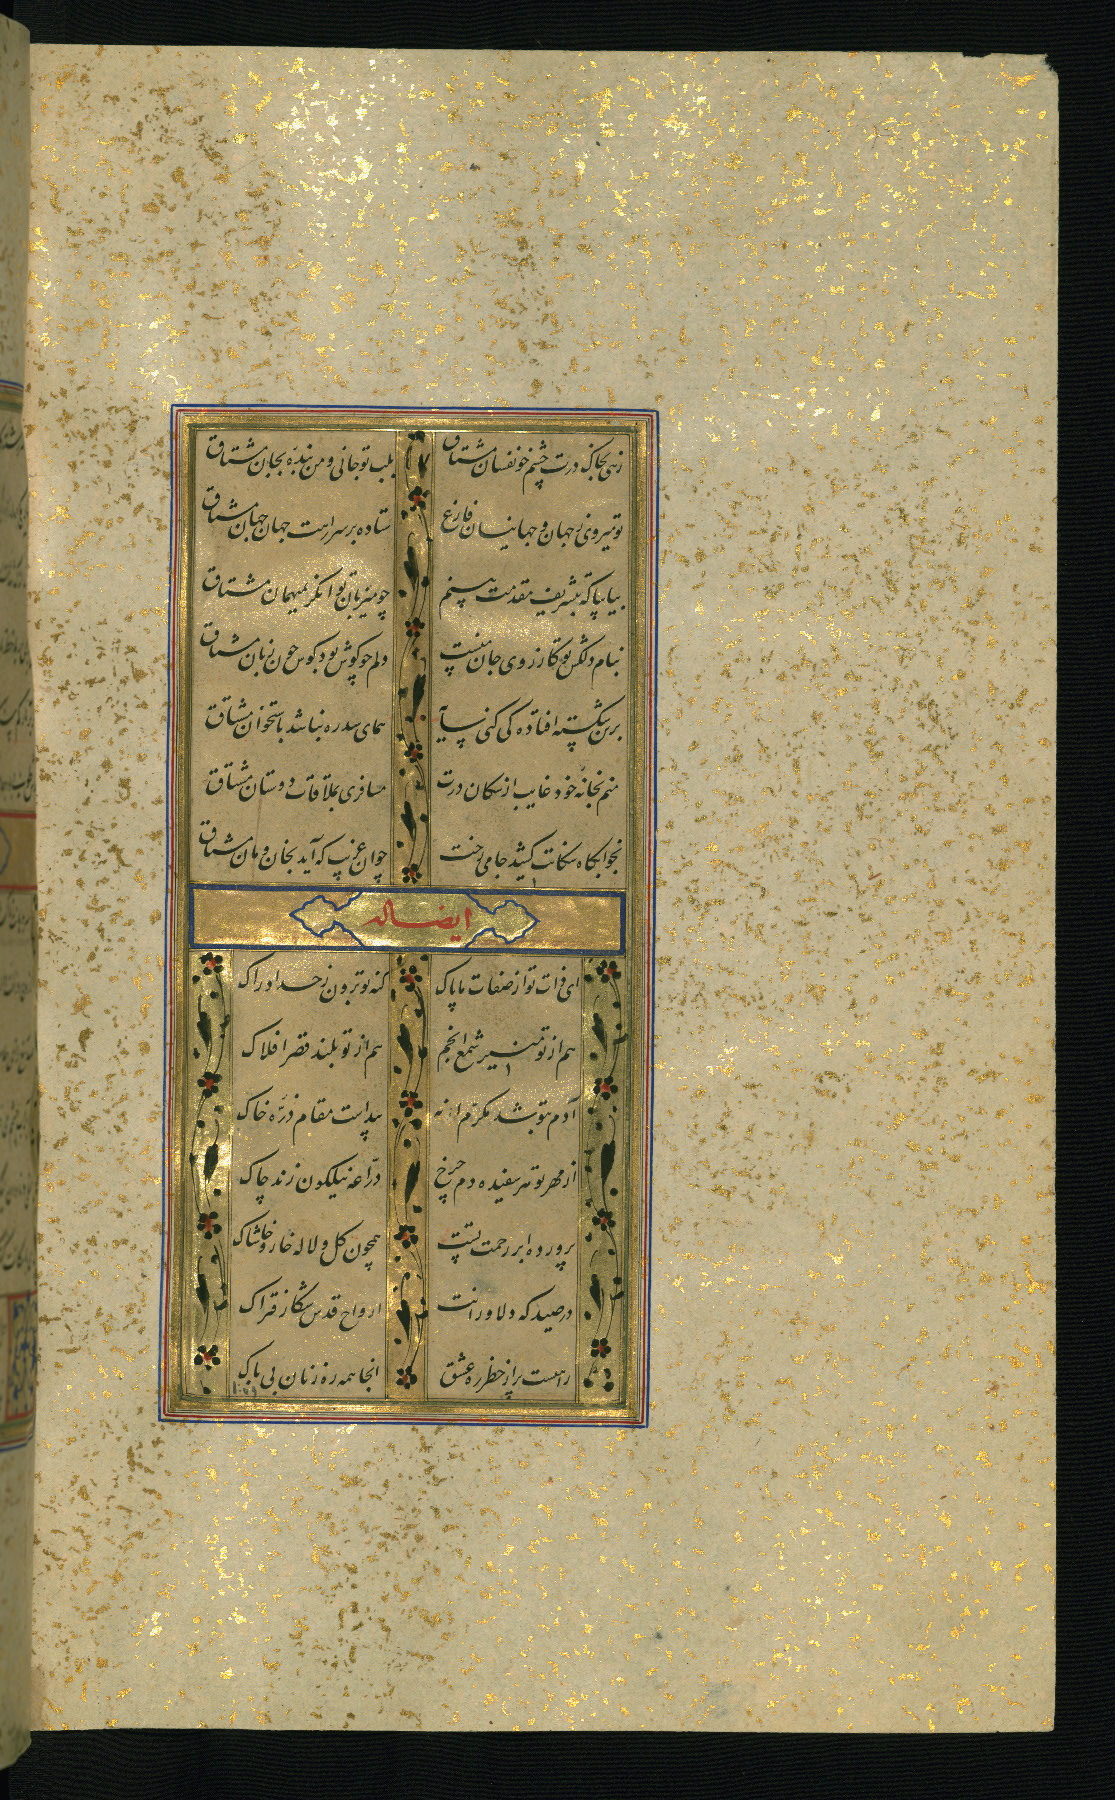 زهی بخاک درت چشم خونفسان مشتاق بلب تو جانی و من بنده بجان مشتاق
تو میروی ز جهان و جهانیان فارغ ستاده بر سر راهت جهان جهان مشتاق
بیا بیا که بتشریف مقدمت هستم چو میزبان توانگر بمیهمان مشتاق
بنام دلکش تو کارزوی جان منست دلم چو گوش بود گوش چون زبان مشتاق
برین شکسته افتاده کی کنی سایه همای سدره نباشد باستخوان مشتاق
منم بخانه خود غایب از سکان درت مسافری بملاقات دوستان مشتاق
بخوابگاه سکانت کشید جامی رخت چو آن غریب که آید بخان و مان مشتاق
ایضا له
ای ذات تو از صفات ما پاک کنه تو برون ز حد ادراک
هم از تو منیر شمع انجم هم از تو بلند قصر افلاک
آدم بتو شد مکرم ار نه پیداست مقام ذره خاک
از مهر تو هر سفیده دم چرخ دراعه نیلگون زند چاک
پرورده ابر رحمت تست همچون گل و لاله خار و خاشاک
در صیدگه دلاورانت ارواح قدس شکار فتراک
راهست پر از خطر ره عشق آنجا همه ره زنان بی باک